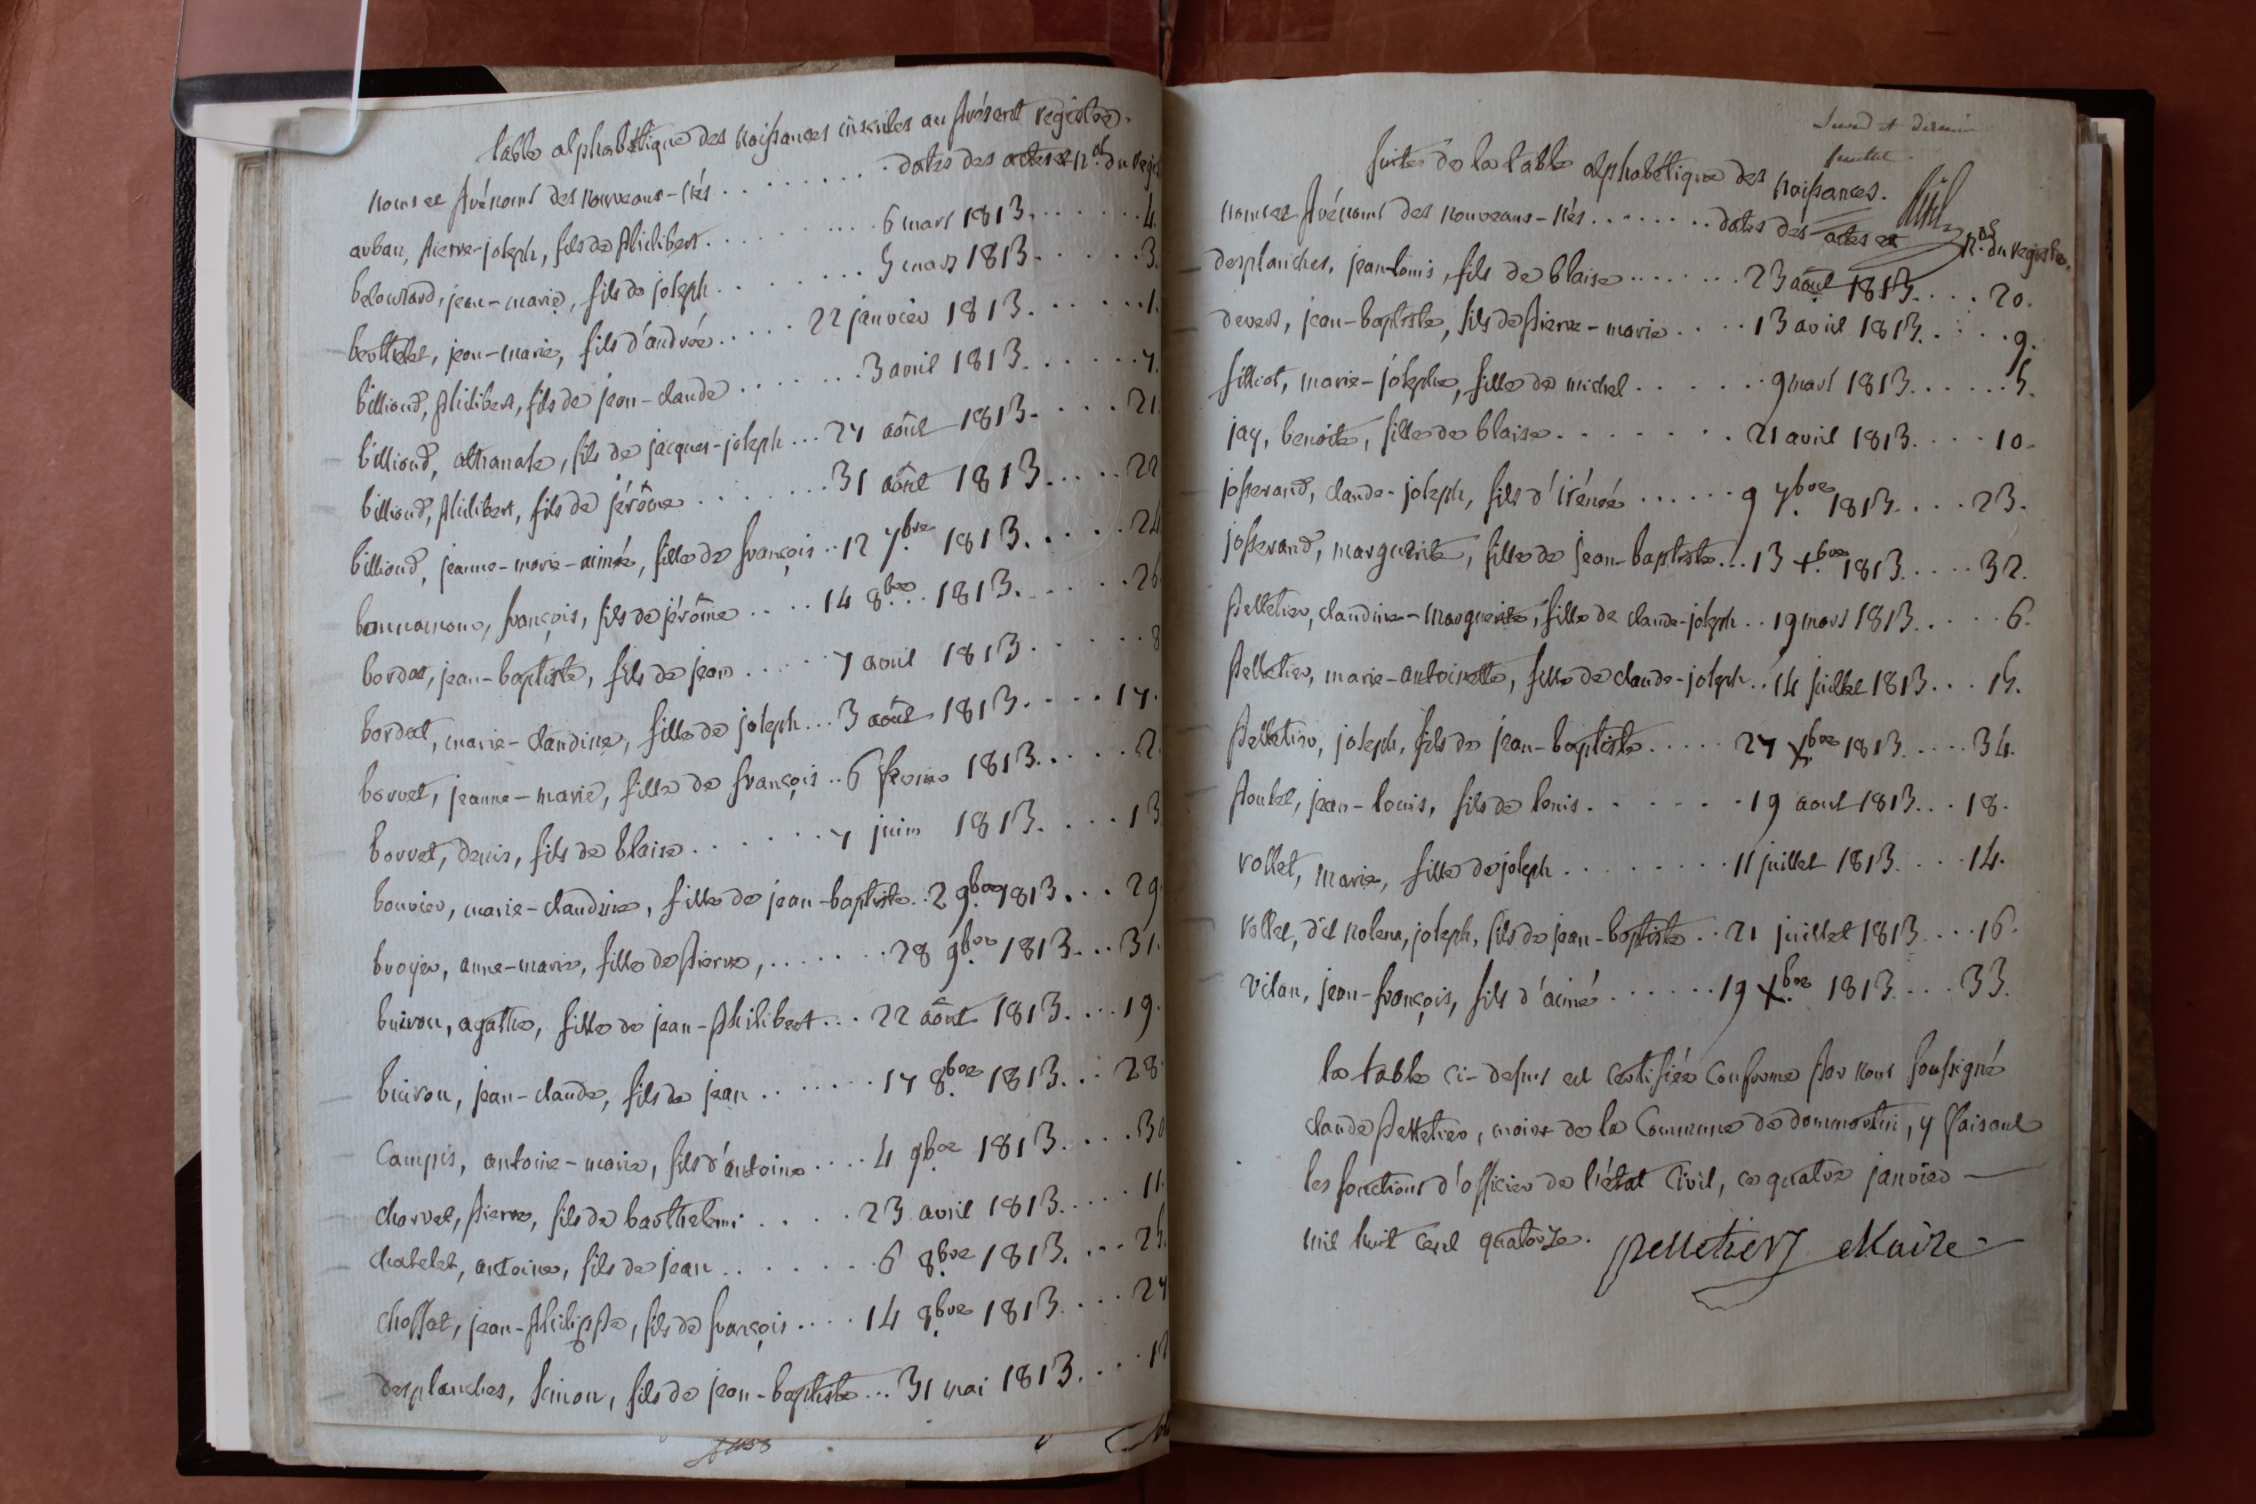 table alphabétique des naissances inscrites au présent registre.
noms et prénoms des nouveaux-nés . . . . . . . . dates des actes et n.os du regis
auban, pierre-joseph, fils de philibert . . . . . . . . 6 mars 1813 . . . . . . 4.
belouzard, jean-marie, fils de joseph . . . . . . . 5 mars 1813 . . . . . . 3.
berthelet, jean-marie, fils d'andrée . . . . 22 janvier 1813 . . . . . . 1.
billioud, philibert, fils de jean-claude . . . . . . . 3 avril 1813 . . . . . . 7.
billioud, athanase, fils de jacques-joseph . . . 27 aôut 1813 . . . . . 21.
billioud, philibert, fils de jérôme . . . . . . . 31 aôut 1813 . . . . . 22
billioud, jeanne-marie-aimée, fille de françois . . 12 7.bre 1813 . . . . . 24
bonnamour, françois, fils de jérôme . . . . 14 8.bre 1813 . . . . . . 26
bordat, jean-baptiste, fils de jean . . . . . 7 avril 1813 . . . . . . 8
bordat, marie-claudine, fille de joseph . . . 3 aôut 1813 . . . . . 17.
borvet, jeanne-marie, fille de françois . . 6 fevrier 1813 . . . . . 2.
borvet, denis, fils de blaise . . . . . . . 7 juin 1813 . . . . 13
bouvier, marie-claudine, fille de jean-baptiste . . 2 9.bre 1813 . . . 29
broyer, anne-marie, fille de pierre, . . . . . . . 28 9.bre 1813 . . . 31.
buiron, agathe, fille de jean-philibert . . . 22 aôut 1813 . . . . 19.
buiron, jean-claude, fils de jean . . . . . . . 17 8.bre 1813 . . . 28.
Campis, antoine-marie, fils d'antoine . . . . 4 9.bre 1813 . . . . 30
charvet, pierre, fils de barthelemi . . . . . 23 avril 1813 . . . . 11.
chatelet, antoine, fils de jean . . . . . . . . 6 8.bre 1813 . . . . 25.
choffat, jean-philippe, fils de françois . . . . 14 8.bre 1813 . . . . 27
desplanches, simon, fils de jean-baptiste . . . 31 mai 1813 . . . . 12
Second et dernier
feuillet.
suite de la table alphabétique des naissances.
noms et prénoms des nouveaux-nés . . . . . . . dates des actes et n.os du registre.
desplanches, jean-louis, fils de blaise . . . . . . . 23 aôut 1813 . . . . 20.
devers, jean-baptiste, fils de pierre-marie . . . . 13 avril 1813 . . . . . 9.
filliot, marie-josephe, fille de michel . . . . . . . 9 mars 1813 . . . . . 5.
jay, benoite, fille de blaise . . . . . . . . 21 avril 1813 . . . . 10.
josserand, claude-joseph, fils d'irénée . . . . . . 9 7.bre 1813 . . . . 23.
josserand, marguerite, fille de jean-baptiste . . . 13 x.bre 1813 . . . . 32.
pelletier, claudine-marguerite, fille de claude-joseph . . 19 mars 1813 . . . . . 6.
pelletier, marie-antoinette, fille de claude-joseph . . 14 juillet 1813 . . . 15.
pelletier, joseph, fils de jean-baptiste . . . . . 27 x.bre 1813 . . . . 34.
poulet, jean-louis, fils de louis . . . . . . . 19 aout 1813 . . . 18.
rollet, marie, fille de joseph . . . . . . . . 11 juillet 1813 . . . 14.
rollet, dit joseph, fils de jean-baptiste . . 21 juillet 1813 . . . . 16.
vilan, jean-françois, fils d'aimé . . . . . . 19 x.bre 1813 . . . . 33.
la table ci-dessus est certifiée conforme par nous soussigné
claude pelletier, maire de la Commune de dommartin, y faisant
les fonctions d'officier de l'état civil, ce quatre janvier
mil huit cent quatorze. pelletier Maire